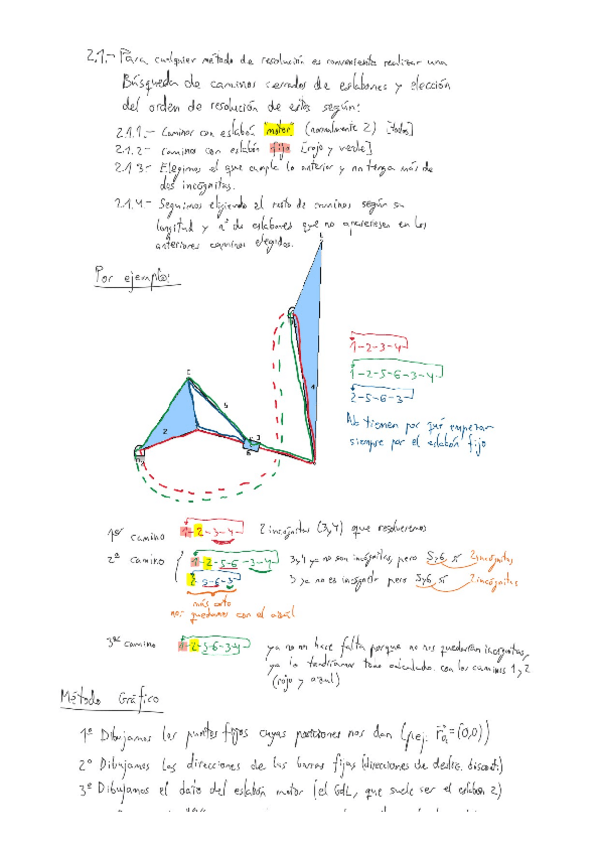 2.1.- Para cualquier método de resolución es conveniente realizar una
Búsqueda de caminos cerrados de eslabones y elección
del orden de resolución de estos según:
2.1.1.- Caminos con eslabón "motor" (normalmente 2) [todos]
2.1.2- caminos con eslabón fijo [rojo y verde]
2.1.3- Elegimos el que cumpla lo anterior y no tenga más de
dos incógnitas.
2.1.4- Seguimos eligiendo el resto de caminos según su
longitud y nº de eslabones que no apareciesen en los
anteriores caminos elegidos.
Por ejemplo:
C
5
2
3
6
4
1-2-3-4
1-2-5-6-3-4
2-5-6-3
No tienen por qué empezar
siempre por el eslabón fijo
1er camino 1-2-3-4 2 incógnitas (3,4) que resolveremos
2º camino 1-2-5-6-3-4 3,4 ya no son incógnitas, pero 5,6, sí 2 incógnitas
2-5-6-3 3 ya no es incógnita pero 5,6 sí 2 incógnitas
más corto
nos quedamos con el azul
3er camino 1-2-5-6-3-4 ya no hace falta porque no nos quedarían incógnitas,
ya lo tendríamos todo calculado con los caminos 1 y 2
(rojo y azul)
Método Gráfico
1º Dibujamos los puntos fijos cuyas posiciones nos dan (p.ej: = (0,0))
2º Dibujamos las direcciones de las barras fijas (direcciones de
3º Dibujamos el dato del eslabón motor (el GdL, que suele ser el eslabón 2)